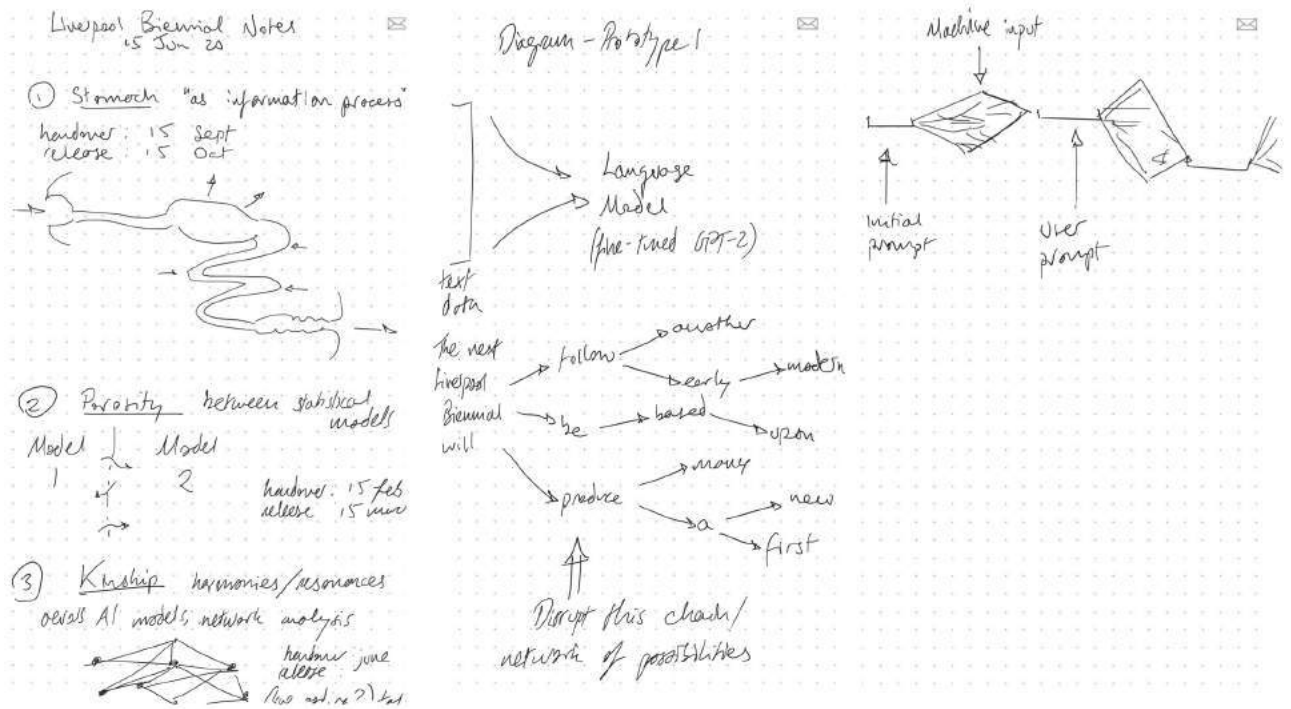 Liverpool Biennial Notes
15 Jun 20
① Stomach "as information process"
handover: 15 Sept
release: 15 Oct
② Porosity between statistical
models
Model Model
1 2
handover: 15 feb
release 15 mar
③ Kinship harmonies/resonances
across AI models, network analysis
handover june
release
Diagram - Prototype 1
Language
Model
(fine-tuned GPT-2)
text
data
The next
Liverpool
Biennial
will
follow
another
early
modern
be
based
upon
produce
many
a
new
first
Disrupt this chain/
network of possibilities
Machine input
Initial
prompt
User
prompt